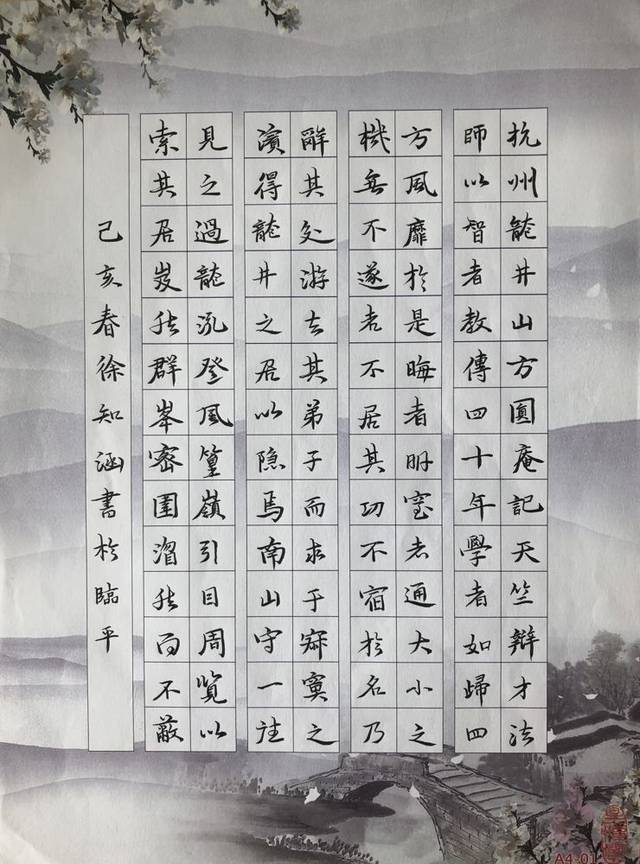 杭州龍井山方圓庵記天竺辯才法
師以智者教傳四十年學者如歸四
方風靡於是晦者明窒者通大小之
機無不遂者不居其功不宿於名乃
辭其交游去其弟子而求于寂寞之
濱得龍井之居以隱焉南山守一往
見之過龍泓登風篁嶺引目周覽以
索其居岌然群峯密圍溜然而不蔽
己亥春徐知涵書於臨平
A4-01